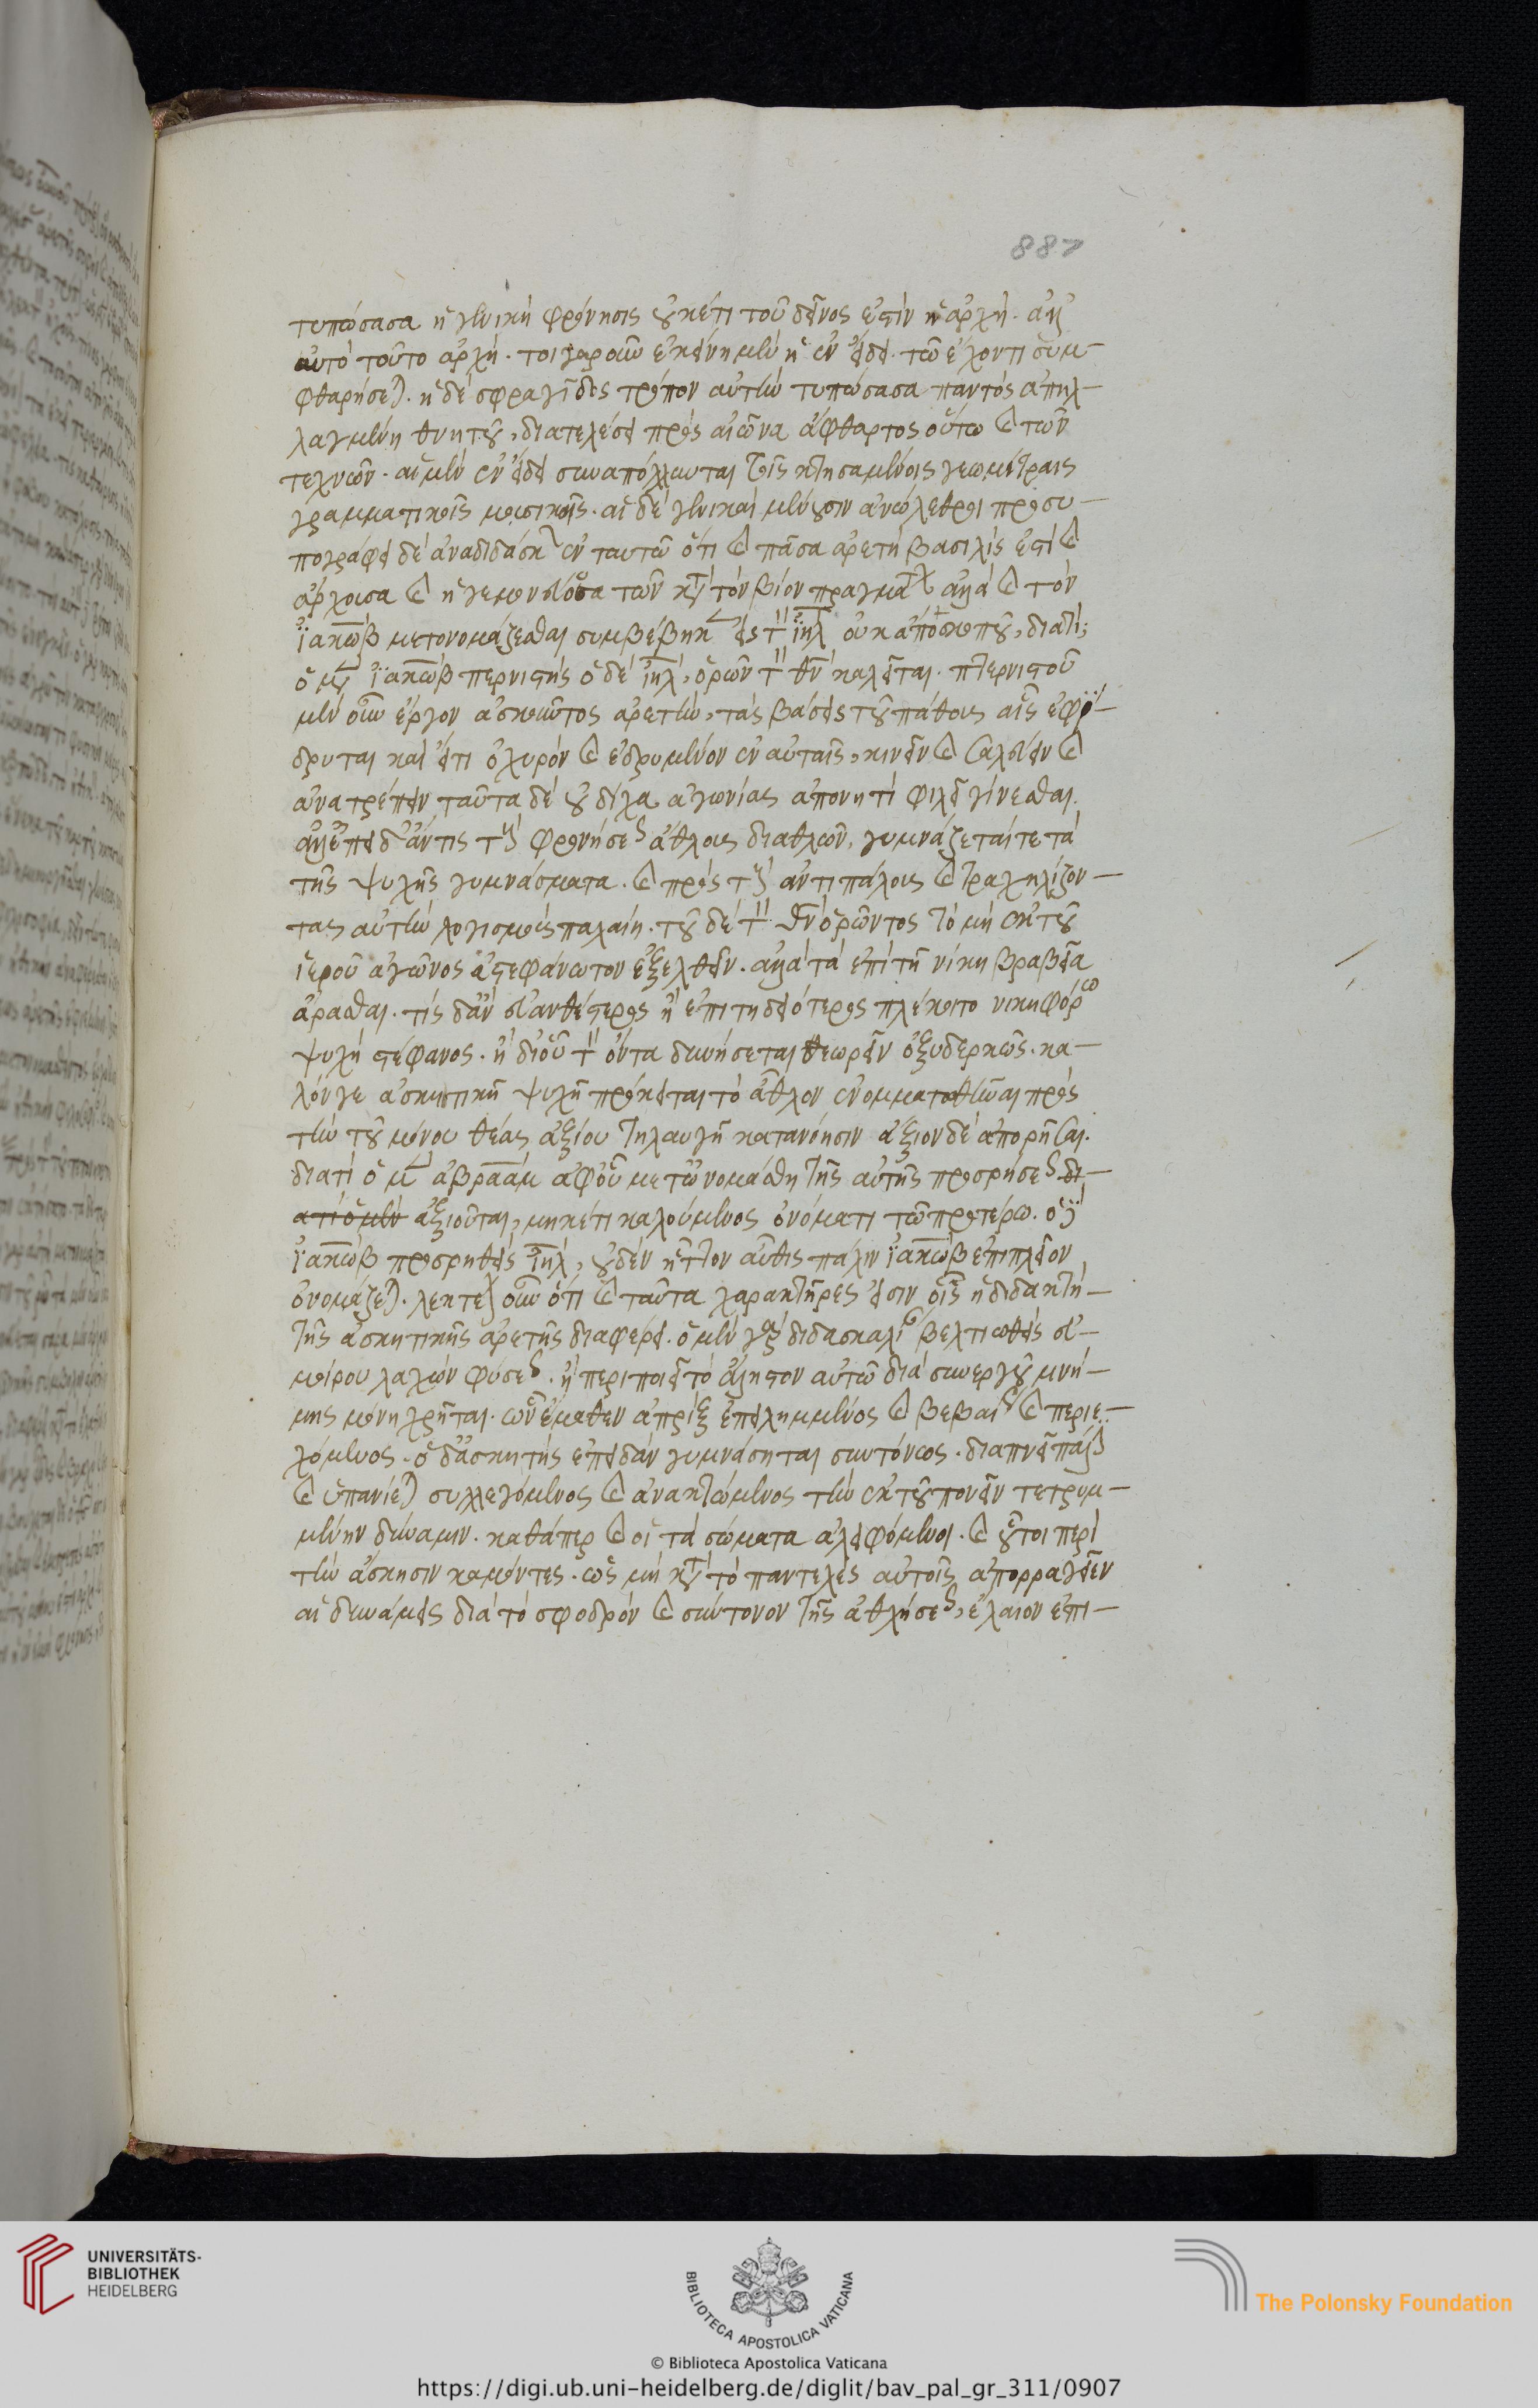 887
τυπώσασα ἡ γενικὴ φρόνησις οὐκέτι τοῦ δεῖνος ἐστὶν ἡ ἀρχὴ. ἀλλ'
αὐτὸ τοῦτο ἀρχή. τοιγαροῦν ἐκείνη μὲν ἡ ἐν εἴδει τῶ ἔχοντι συμ-
φθαρήσεται. ἡ δὲ σφραγῖδος τρόπον αὐτὴν τυπώσασα παντὸς ἀπηλ-
λαγμένη θνητοῦ, διατελέσει πρὸς αἰῶνα ἄφθαρτος οὕτω καὶ τῶν
τεχνῶν. αἱ μὲν ἐν εἴδει συναπόλλυνται τοῖς κτησαμένοις γεωμέτραις
γραμματικοῖς μουσικοῖς. αἱ δὲ γενικαὶ μένουσιν ἀνώλεθροι προσυ-
πογράφει δὲ ἀναδιδάσκων ἐν ταυτῶ ὅτι καὶ πᾶσα ἀρετὴ βασιλίς ἐστι καὶ
ἄρχουσα καὶ ἡγεμονεύουσα τῶν κατὰ τὸν βίον πραγμάτων ἀλλὰ καὶ τὸν
ἰακὼβ μετονομάζεσθαι συμβέβηκεν εἰς τὸν ἰηλ οὐκ ἀπὸ σκοποῦ, διατί;
ὁ μὲν ἰακὼβ περνιστὴς ὁ δὲ ἰηλ, ὁρῶν τὸν θν καλεῖται. πτερνιστοῦ
μὲν οὖν ἔργον ἀσκοῦντος ἀρετὴν, τὰς βάσεις τοῦ πάθους αἷς ἐφί-
δρυται καὶ εἴτι ὀχυρὸν καὶ ἑδρυμένον ἐν αὐταῖς, κινεῖν καὶ σαλεύειν καὶ
ἀνατρέπειν ταῦτα δὲ οὐ δίχα ἀγωνίας ἀπονητὶ φιλεῖ γίνεσθαι.
ἀλλ' ἐπειδ' ἄν τις τοὺς φρονήσεως ἄθλους διαθλῶν, γυμνάζεταί τε τὰ
τῆς ψυχῆς γυμνάσματα. καὶ πρὸς τοὺς ἀντιπάλους καὶ τραχηλίζον-
τας αὐτὴν λογισμοὺς παλαίη. τοῦ δὲ τὸν θν ὁρῶντος τὸ μὴ ἐκ τοῦ
ἱεροῦ ἀγῶνος ἀστεφάνωτον ἐξελθεῖν. ἀλλὰ τὰ ἐπὶ τῆ νίκη βραβεῖα
ἄρασθαι. τίς δ' ἂν εὐανθέστερος ἢ ἐπιτηδειότερος πλέκοιτο νικηφόρω
ψυχῆ στέφανος. ἢ δι' οὗ τὸν ὄντα δυνήσεται θεωρεῖν ὀξυδερκῶς. κα-
λόν γε ἀσκητικῆ ψυχῆ πρόκειται τὸ ἆθλον ἐνομματοθῆναι πρὸς
τὴν τοῦ μόνου θέας ἀξίου τηλαυγῆ κατανόησιν ἄξιον δὲ ἀπορῆσαι.
διατὶ ὁ μὲν ἀβραὰμ ἀφοῦ μετωνομάσθη τῆς αὐτῆς προσρήσεως δι-
ατὶ ὁ μὲν ἀξιοῦται, μηκέτι καλούμενος ὀνόματι τῶ προτέρω. ὁ δὲ
ἰακὼβ προσρηθεὶς ἰηλ, οὐδὲν ἧττον αὖθις πάλιν ἰακὼβ ἐπιπλεῖον
ὀνομάζεται. λεκτέον οὖν ὅτι καὶ ταῦτα χαρακτῆρες εἰσιν οἷς ἡ διδακτὴ-
τῆς ἀσκητικῆς ἀρετῆς διαφέρει. ὁ μὲν γὰρ διδασκαλία βελτιωθεὶς εὐ-
μοίρου λαχὼν φύσεως. ἢ περιποιεῖ τὸ ἄληστον αὐτῶ διὰ συνεργοῦ μνή-
μης μόνη χρῆται. ὧν ἔμαθεν ἀπρὶξ ἐπειλημμένος καὶ βεβαίως καὶ περιε-
χόμενος. ὁ δ' ἀσκητὴς ἐπειδὰν γυμνάσηται συντόνως. διαπνεῖ πάλιν
καὶ ὑπανίεται συλλεγόμενος καὶ ἀνακτώμενος τὴν ἐκ τοῦ πονεῖν τετρυμ-
μένην δύναμιν. καθάπερ καὶ οἱ τὰ σώματα ἀλειφόμενοι. καὶ οὗτοι περὶ
τὴν ἄσκησιν καμόντες. ὡς μὴ κατὰ τὸ παντελὲς αὐτοῖς ἀπορραγεῖεν
αἱ δυνάμεις διὰ τὸ σφοδρὸν καὶ σύντονον τῆς ἀθλήσεως, ἔλαιον ἐπι-
UNIVERSITÄTS-
BIBLIOTHEK
HEIDELBERG
BIBLIOTECA APOSTOLICA VATICANA
© Biblioteca Apostolica Vaticana
The Polonsky Foundation
https://digi.ub.uni-heidelberg.de/diglit/bav_pal_gr_311/0907